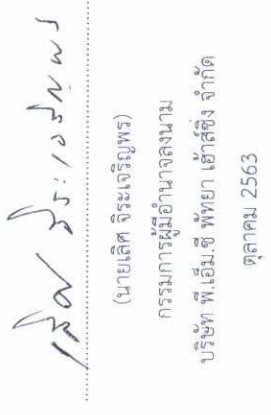 เลิศ จิระเจริญพร
(นายเลิศ จิระเจริญพร)
กรรมการผู้มีอำนาจลงนาม
บริษัท พี.เอ็ม.ซี พัทยา เฮ้าส์ซิ่ง จำกัด
ตุลาคม 2563